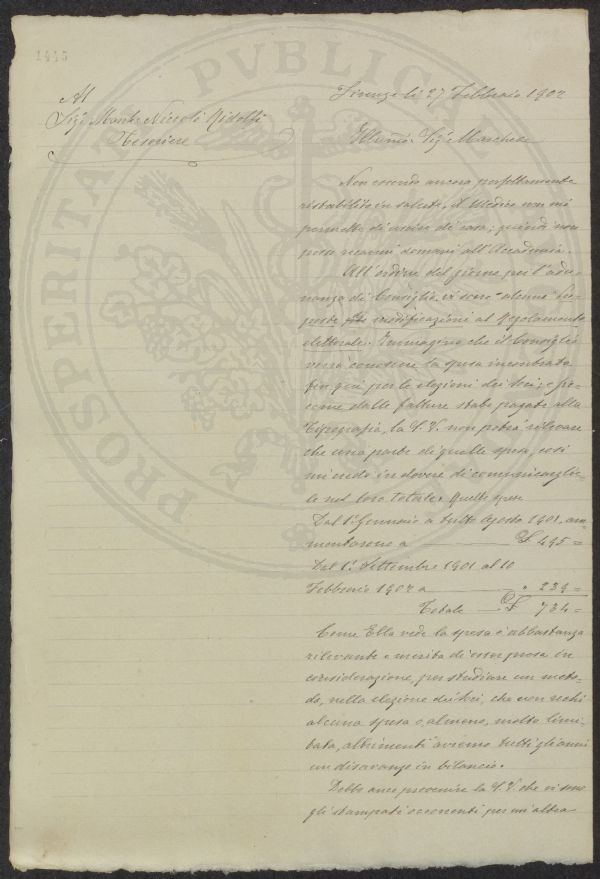 1415
PROSPERITATI PVBLICAE
Firenze li 27 Febbraio 1902
Al
Sigr March. Niccolò Ridolfi
Tesoriere
Illumo Sigr Marchese
Non essendo ancora perfettamente
ristabilito in salute, il Medico non mi
permette di uscire di casa; quindi non
posso recarmi domani all'Accademia.
All'ordine del giorno per l'adu-
nanza di Consiglio vi sono "alcune pro-
poste modificazioni al Regolamento
elettorale. Immagino che il Consiglio
vorrà conoscere la spesa incontrata
fin qui per le elezioni dei Soci; e sic-
come dalle fatture state pagate alla
Tipografia, la S. V. non potrà rilevare
che una parte di quelle spese, così
mi credo in dovere di comunicarglie-
le nel loro totale. Quelle spese
Dal 1° Gennaio a tutto Agosto 1901, am-
montarono a £ 495 =
Dal 1° Settembre 1901 al 10
Febbraio 1902 a " 239 =
Totale £ 734 =
Come Ella vede la spesa è abbastanza
rilevante e merita di esser presa in
considerazione, per studiare un meto-
do, nella elezione dei Soci, che non rechi
alcuna spesa o, almeno, molto limi-
tata, altrimenti avremo tutti gli anni
un disavanzo in bilancio.
Debbo anco prevenire la S. V. che vi sono
gli stampati occorrenti per un'altra